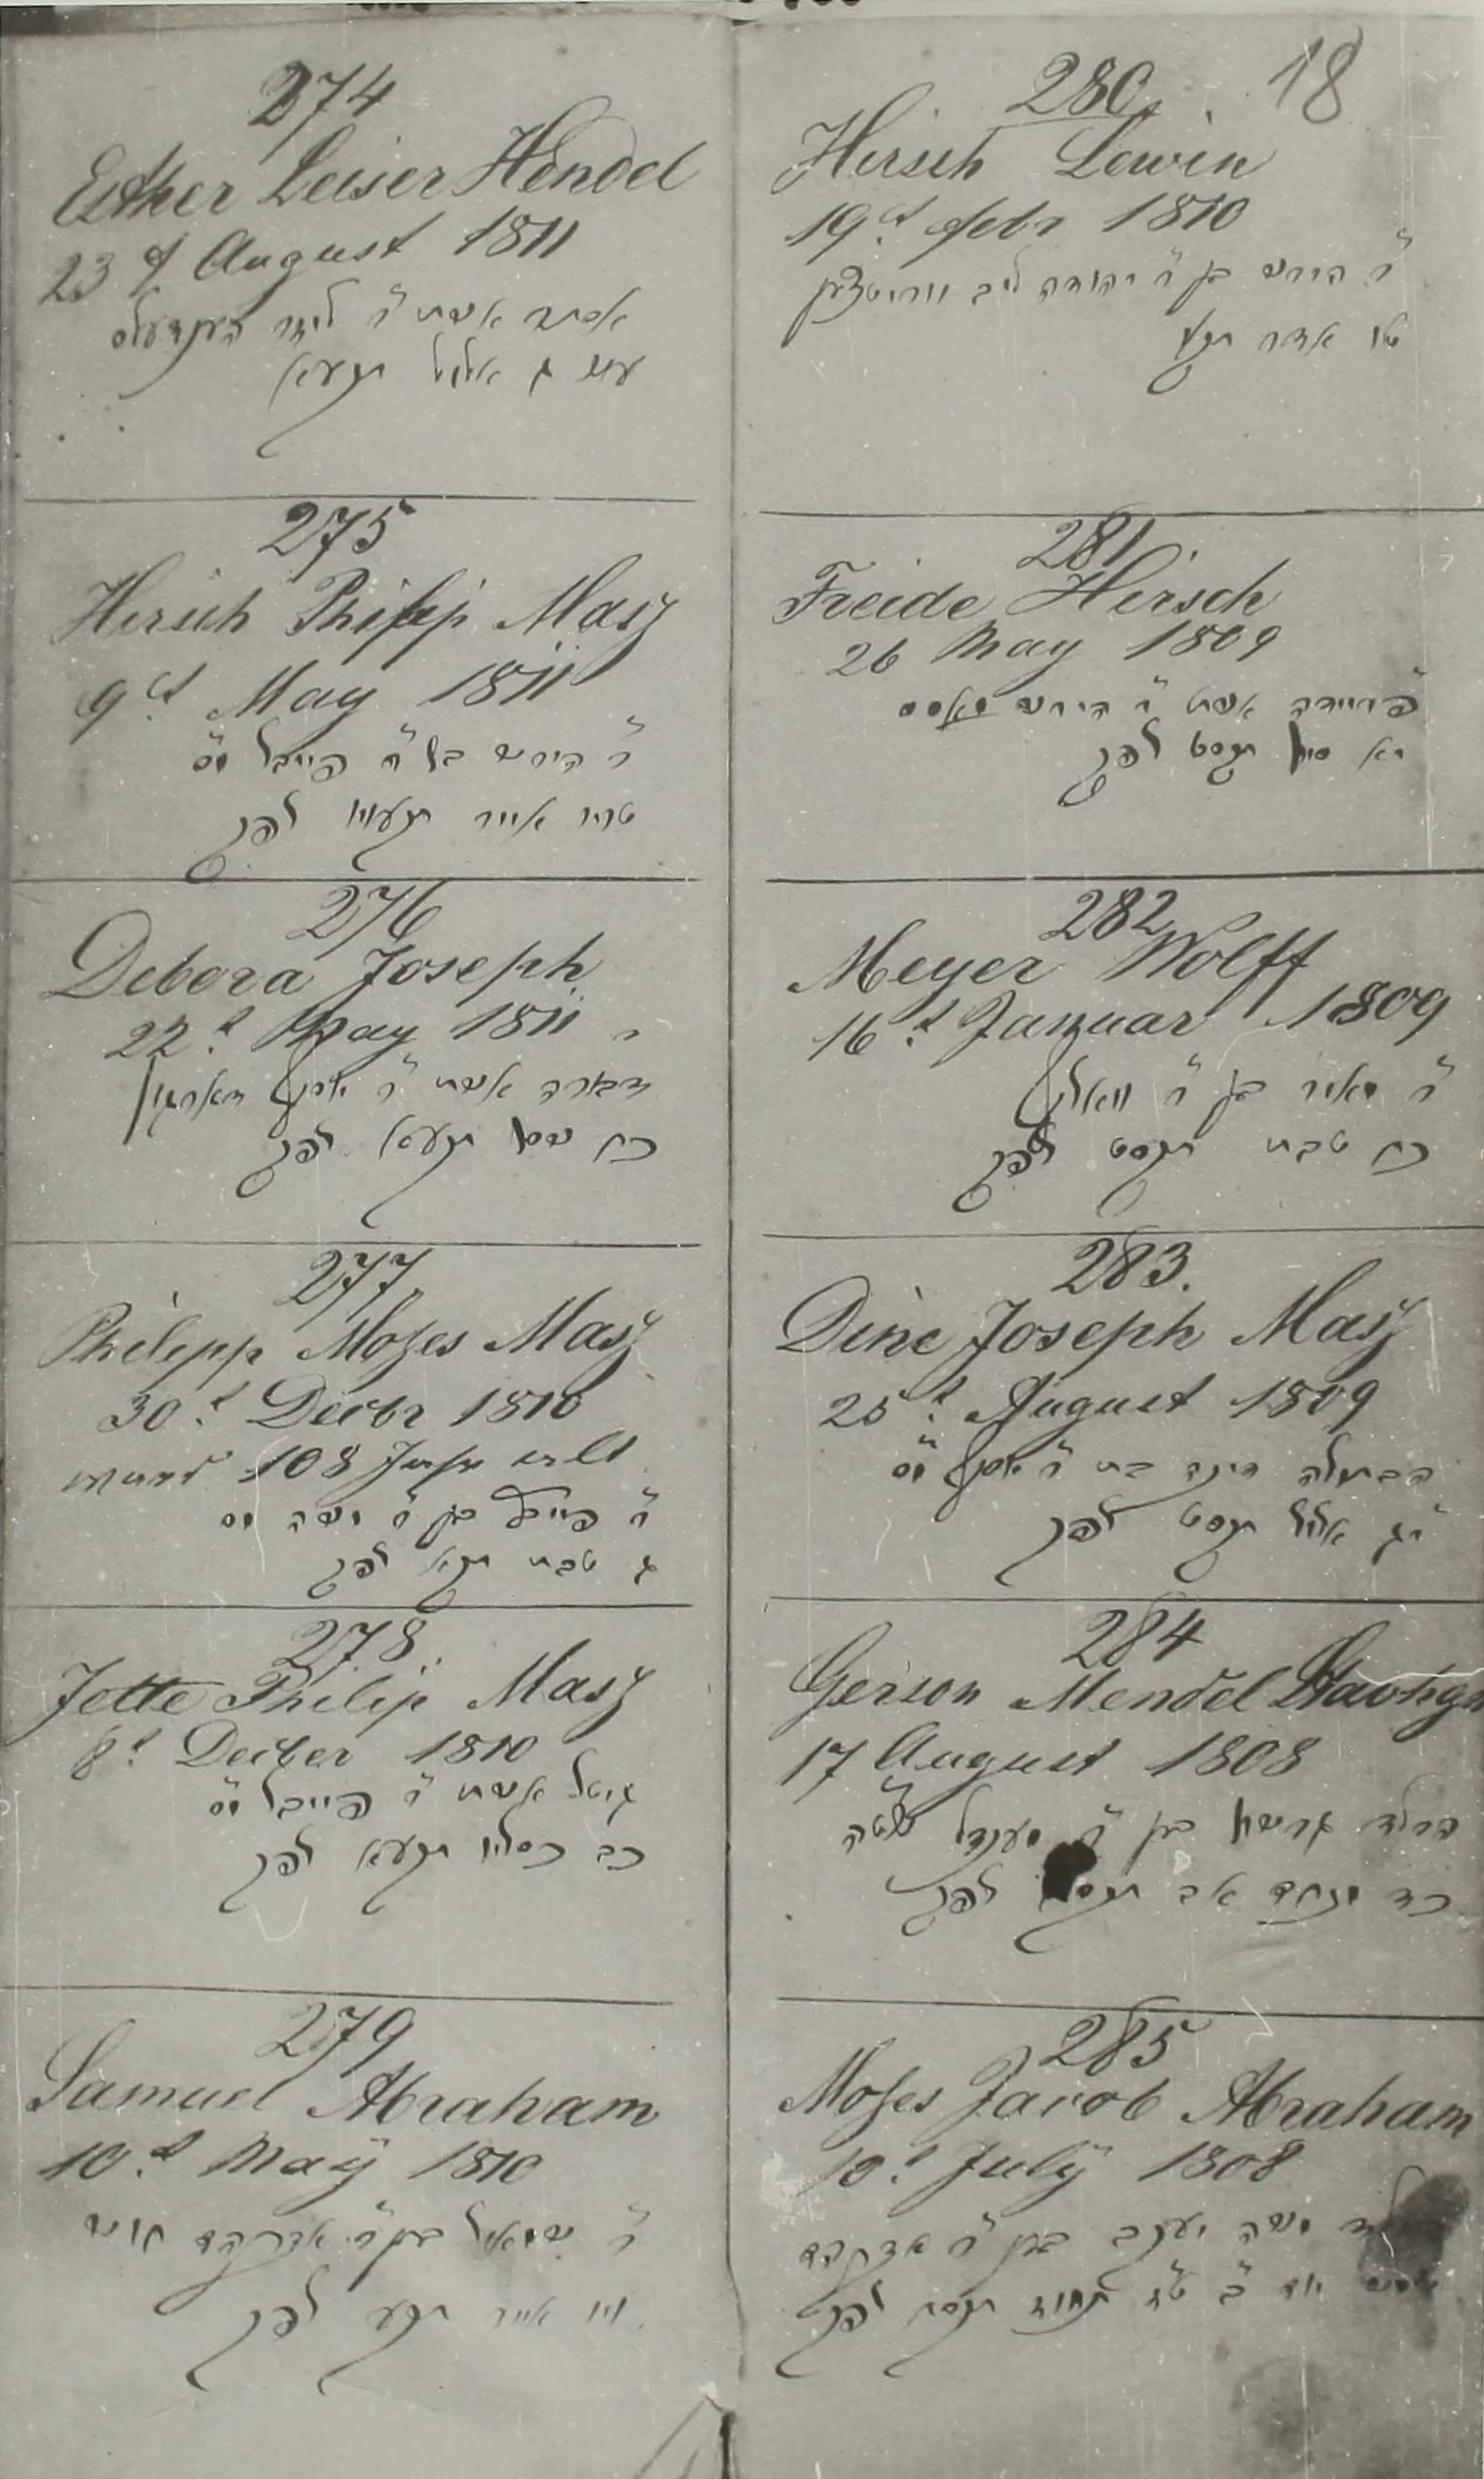 274
Esther Leiser Hendel
23 t August 1811
אסתר אשת ר' ליזר הענדעלס
ג אלול תקעא
275
Hirsch Philip Masz
9 t May 1811
ר' הירש בר' פייבל
אייר לפק
276
Debora Joseph
22 t May 1811
דבורה אשת ר' יוסף
כח תקעא לפק
277
Philipp Moses Masz
30 t Decbr 1810
ward 108 Jahr alt
ר' פייבל בן ר' משה
ג טבת לפק
278
Jette Philip Masz
8 t Decber 1810
גיטל אשת ר' פייבל
כב כסליו תקעא לפק
279
Samuel Abraham
10 t May 1810
ר' שמואל בן ר' אברהם
אייר תקע לפק
280. 18
Hirsch Lewin
19 t febr 1810
ר' הירש בן ר' יהודה ליב
טו אדר תקע
281
Freide Hirsch
26 May 1809
פריידה אשת ר' הירש
יא סיון תקסט לפק
282
Meyer Wolff
16 t Januar 1809
ר' מאיר בן ר' וואלף
כח טבת תקסט לפק
283.
Dine Joseph Masz
25 t August 1809
הבתולה דינה בת ר' יוסף
יג אלול תקסט לפק
284
Gerson Mendel
17 August 1808
הילד גרשון בן ר' מענדל
כד מנחם אב לפק
285
Moses Jacob Abraham
10 t July 1808
משה יעקב בן ר' אברהם
טו תמוז תקסח לפק